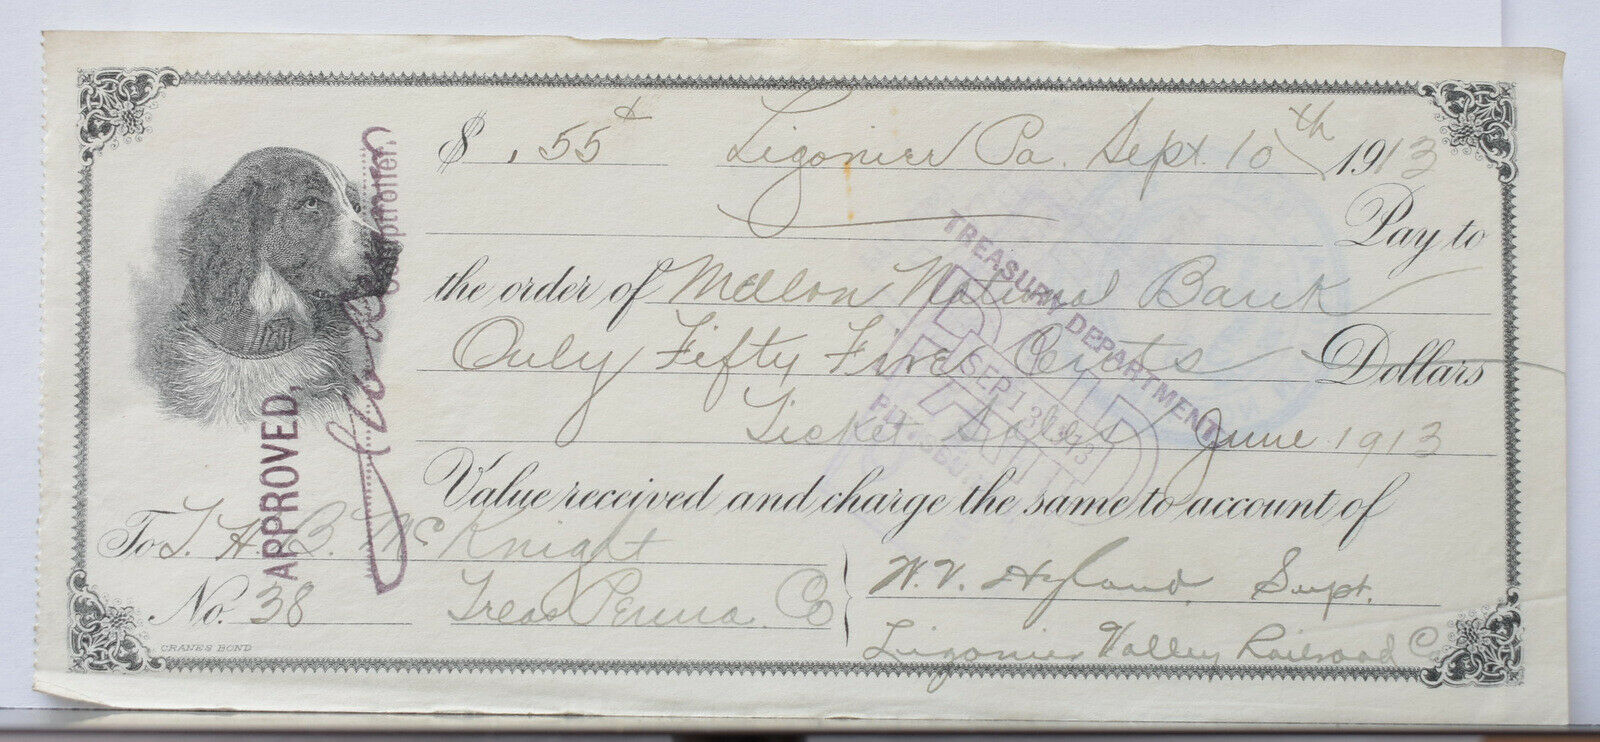 $ .55¢ Ligonier Pa. Sept. 10th 1913
Pay to
the order of Mellon National Bank
Only Fifty Five Cents Dollars
Ticket Sales June 1913
Value received and charge the same to account of
To T. H. B. McKnight
No. 38 Treas Penna. Co
W. V. Hyland Supt.
Ligonier Valley Railroad Co
CRANES BOND
APPROVED,
Comptroller.
TREASURY DEPARTMENT
PAID
SEP 13 1913